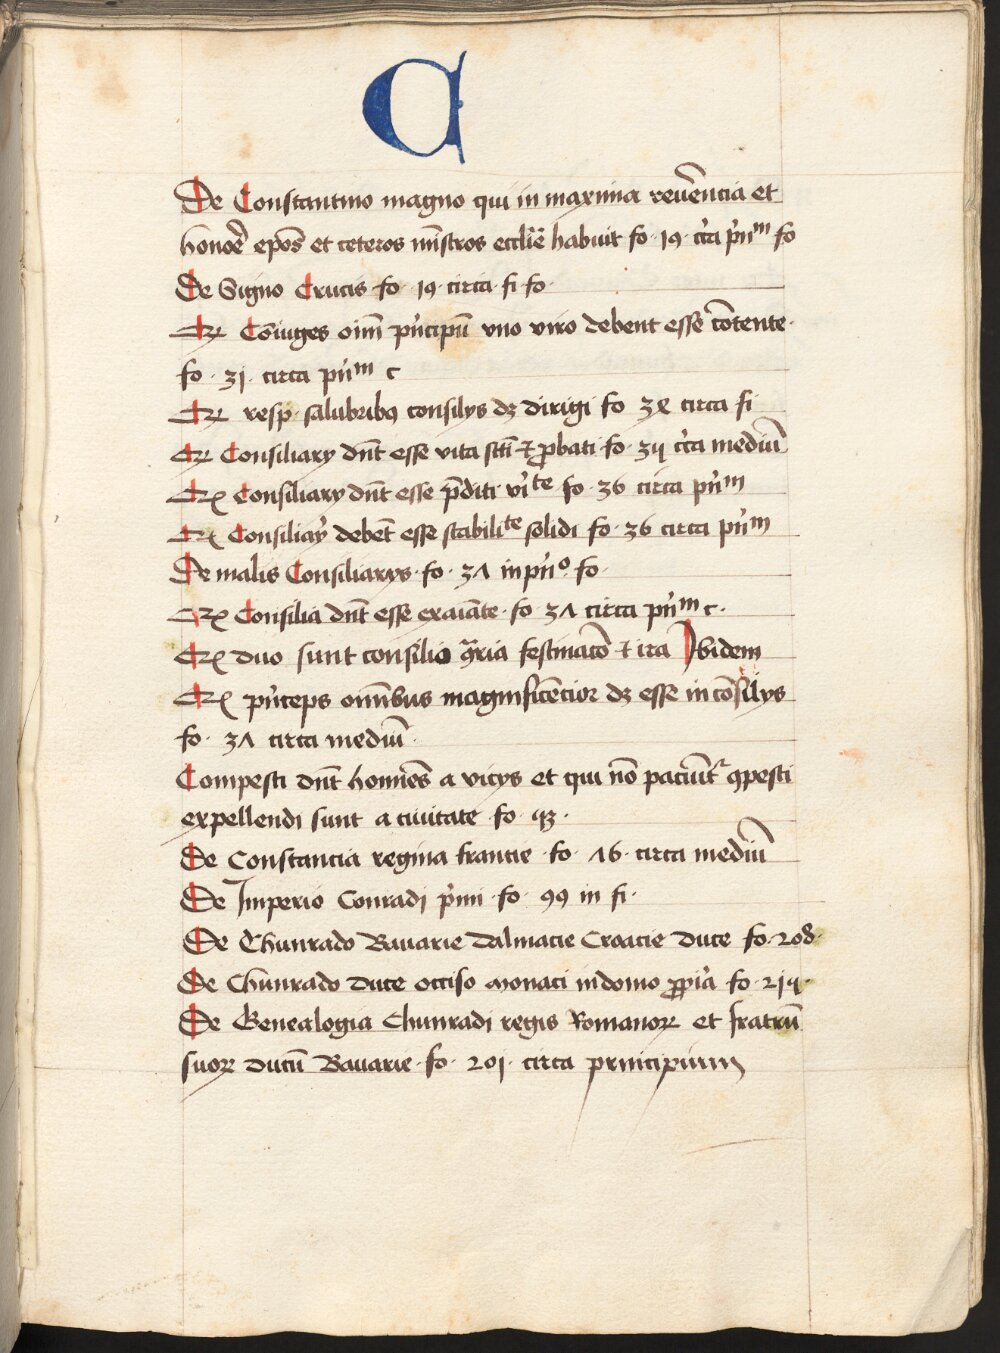 C
De Constantino magno qui in maxima reverencia et
honore epos et ceteros mistros ecclie habuit fo 19 circa prim fo
De Signo Crucis fo 19 circa fi fo
Coniuges oim pricipu uno viro debent esse contente
fo 31 circa prim c
resp salubribus consilys dz dirigi fo circa fi
Consiliary dnt esse vita scti et probati fo circa mediu
Consiliary dnt esse prediti fo 36 circa prim
Consiliary debet esse stabilite solidi fo 36 circa prim
De malis Consiliarys fo 3Λ in prio fo
Consilia dnt esse exaiate fo 3Λ circa prim c
duo sunt consilio et ira Ibidem
princeps omnibus magnificencior dz esse in consilys
fo 3Λ circa mediu
Compesti dnt homies a vicys et qui no paciunt compesti
expellendi sunt a civitate fo
De Constancia regina francie fo Λ6 circa mediu
De Imperio Conradi primi fo 99 in fi
De Chunrado Bavarie Dalmacie Croacie duce fo 208
De Chunrado duce occiso Monaci in domo propria fo
De Genealogia Chunradi regis Romanor et fratru
suor ducu Bavarie fo 201 circa principium